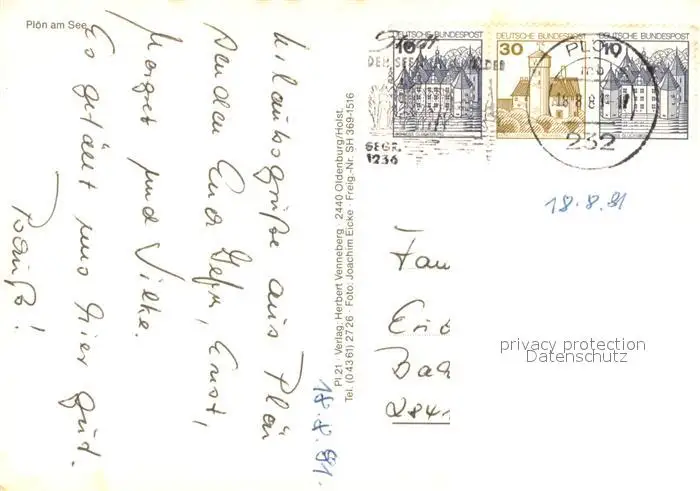 Plön am See
Urlaubsgrüße aus Plön
senden Euch
Ernst,
Margret und
Es gefällt uns hier gut.
Pl 21 · Verlag: Herbert Venneberg · 2440 Oldenburg/Holst.
Tel. (0 43 61) 27 26 · Foto: Joachim Eicke · Freig.-Nr. SH 369-1516
18.8.81.
10 DEUTSCHE BUNDESPOST
DEUTSCHE BUNDESPOST 30
DEUTSCHE BUNDESPOST 10
Stadt
DER SEEN
WÄLDER
GEGR.
1236
PLÖN
mb
18.8.81
232
18.8.81
Fam
Bad
2841
privacy protection
Datenschutz